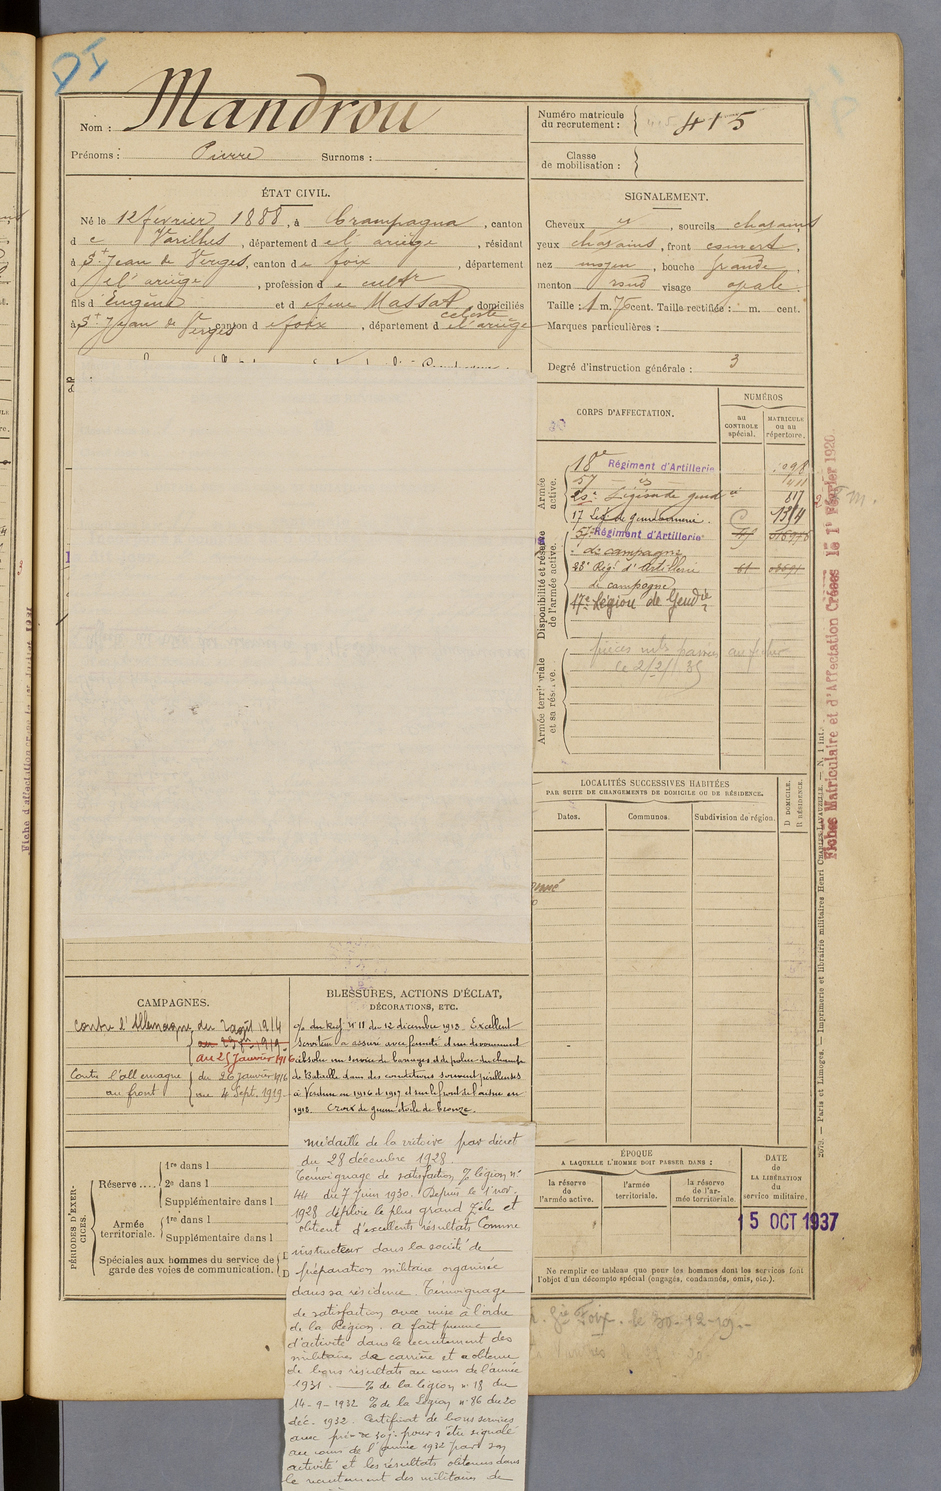 DI
Nom : Mandrou
Prénoms : Pierre Surnoms :
Numéro matricule du recrutement : 415
Classe de mobilisation :
ÉTAT CIVIL.
Né le 12 février 1888, à Crampagna, canton
de Varilhes, département de l'ariège, résidant
à St Jean de Verges, canton de foix, département
d e l'ariège, profession de cultr
fils d'Eugène et de feue Massat celeste, domiciliés
à St Jean de Verges canton de foix, département de l'ariège
SIGNALEMENT.
Cheveux et, sourcils chatains
yeux chatains, front couvert,
nez moyen, bouche grande,
menton rond visage ovale.
Taille : 1 m. 76 cent. Taille rectifiée : m. cent.
Marques particulières :
Degré d'instruction générale : 3
CORPS D'AFFECTATION.
NUMÉROS
au CONTROLE spécial.
MATRICULE ou au répertoire.
Armée active.
18e Régiment d'Artillerie
57 — is
817
17 Leg. de gendarmerie. C 1314
Disponibilité et réserve de l'armée active.
57e Régiment d'Artillerie
de campagne
28e Régt d'Artillerie 61
de campagne
17e Légion de Gendie
Armée territoriale et sa réserve.
pièces mles passées au fichier
le 2/2/35
LOCALITÉS SUCCESSIVES HABITÉES
PAR SUITE DE CHANGEMENTS DE DOMICILE OU DE RÉSIDENCE.
Dates.
Communes.
Subdivision de région.
D DOMICILE.
R RÉSIDENCE.
Fiches Matriculaire et d'Affectation Créées le 1er Février 1920.
2079. — Paris et Limoges. — Imprimerie et librairie militaires Henri CHARLES-LAVAUZELLE. — N. 1 int.
CAMPAGNES.
Contre l'Allemagne, du 2 août 1914
au 25 Janvier 1916
Contre l'allemagne du 26 Janvier 1916
au front au 4 Sept. 1919
BLESSURES, ACTIONS D'ÉCLAT,
DÉCORATIONS, ETC.
o/ du Regt N° 11 du 12 décembre 1918. Excellent
serviteur a assuré avec fermeté et un devouement
absolu un service de barrages et de police du champ
de bataille dans des conditions souvent périlleuses
à Verdun en 1916 et 1917 et sur le front de l'aisne en
1918. Croix de guerre étoile de bronze.
médaille de la victoire par décret
du 28 décembre 1928.
Témoignage de satisfaction légion n°
44 du 7 Juin 1930. Depuis le 1er nov.
1928 déploie le plus grand zèle et
obtient d'excellents résultats comme
instructeur dans la société de
préparation militaire organisée
dans sa résidence. Témoignage
de satisfaction avec mise à l'ordre
de la Région. a fait preuve
d'activité dans le recrutement des
militaires de carrière et a obtenu
de bons résultats au cours de l'année
1931. — de la légion n° 18 du
14-9-1932 de la Légion n° 86 du 20
déc. 1932. Certificat de bons services
avec pour s'être signalé
au cours de l'année 1932 par son
activité et les résultats obtenus dans
le recrutement des militaires de
PÉRIODES D'EXERCICES.
Réserve .... 1re dans l
2e dans l
Supplémentaire dans l
Armée territoriale. 1re dans l
Supplémentaire dans l
Spéciales aux hommes du service de garde des voies de communication.
ÉPOQUE
A LAQUELLE L'HOMME DOIT PASSER DANS :
la réserve de l'armée active.
l'armée territoriale.
la réserve de l'armée territoriale.
DATE de LA LIBÉRATION du service militaire.
15 OCT 1937
Ne remplir ce tableau que pour les hommes dont les services font
l'objet d'un décompte spécial (engagés, condamnés, omis, etc.).
Foix. le 30-12-19.-